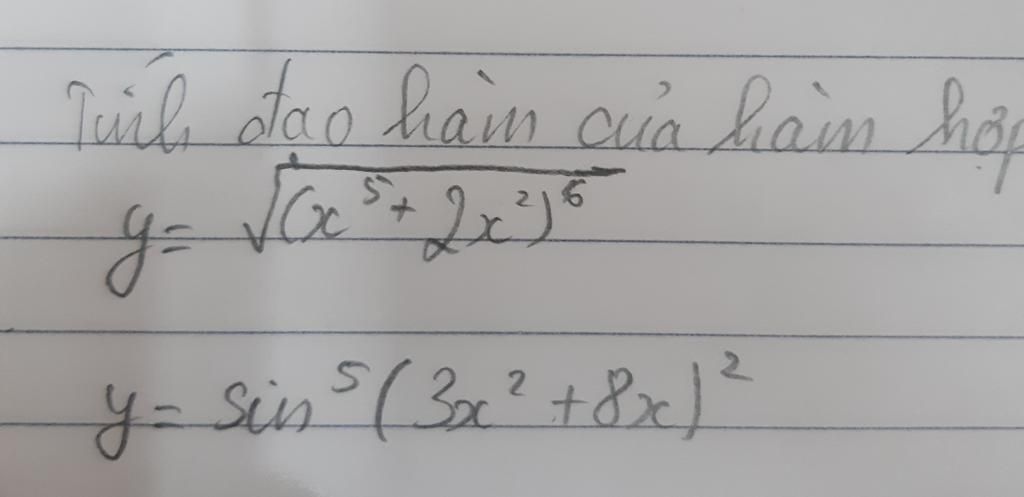 Tính đạo hàm của hàm hợp
y = √(x⁵ + 2x²)⁶
y = sin⁵(3x² + 8x)²